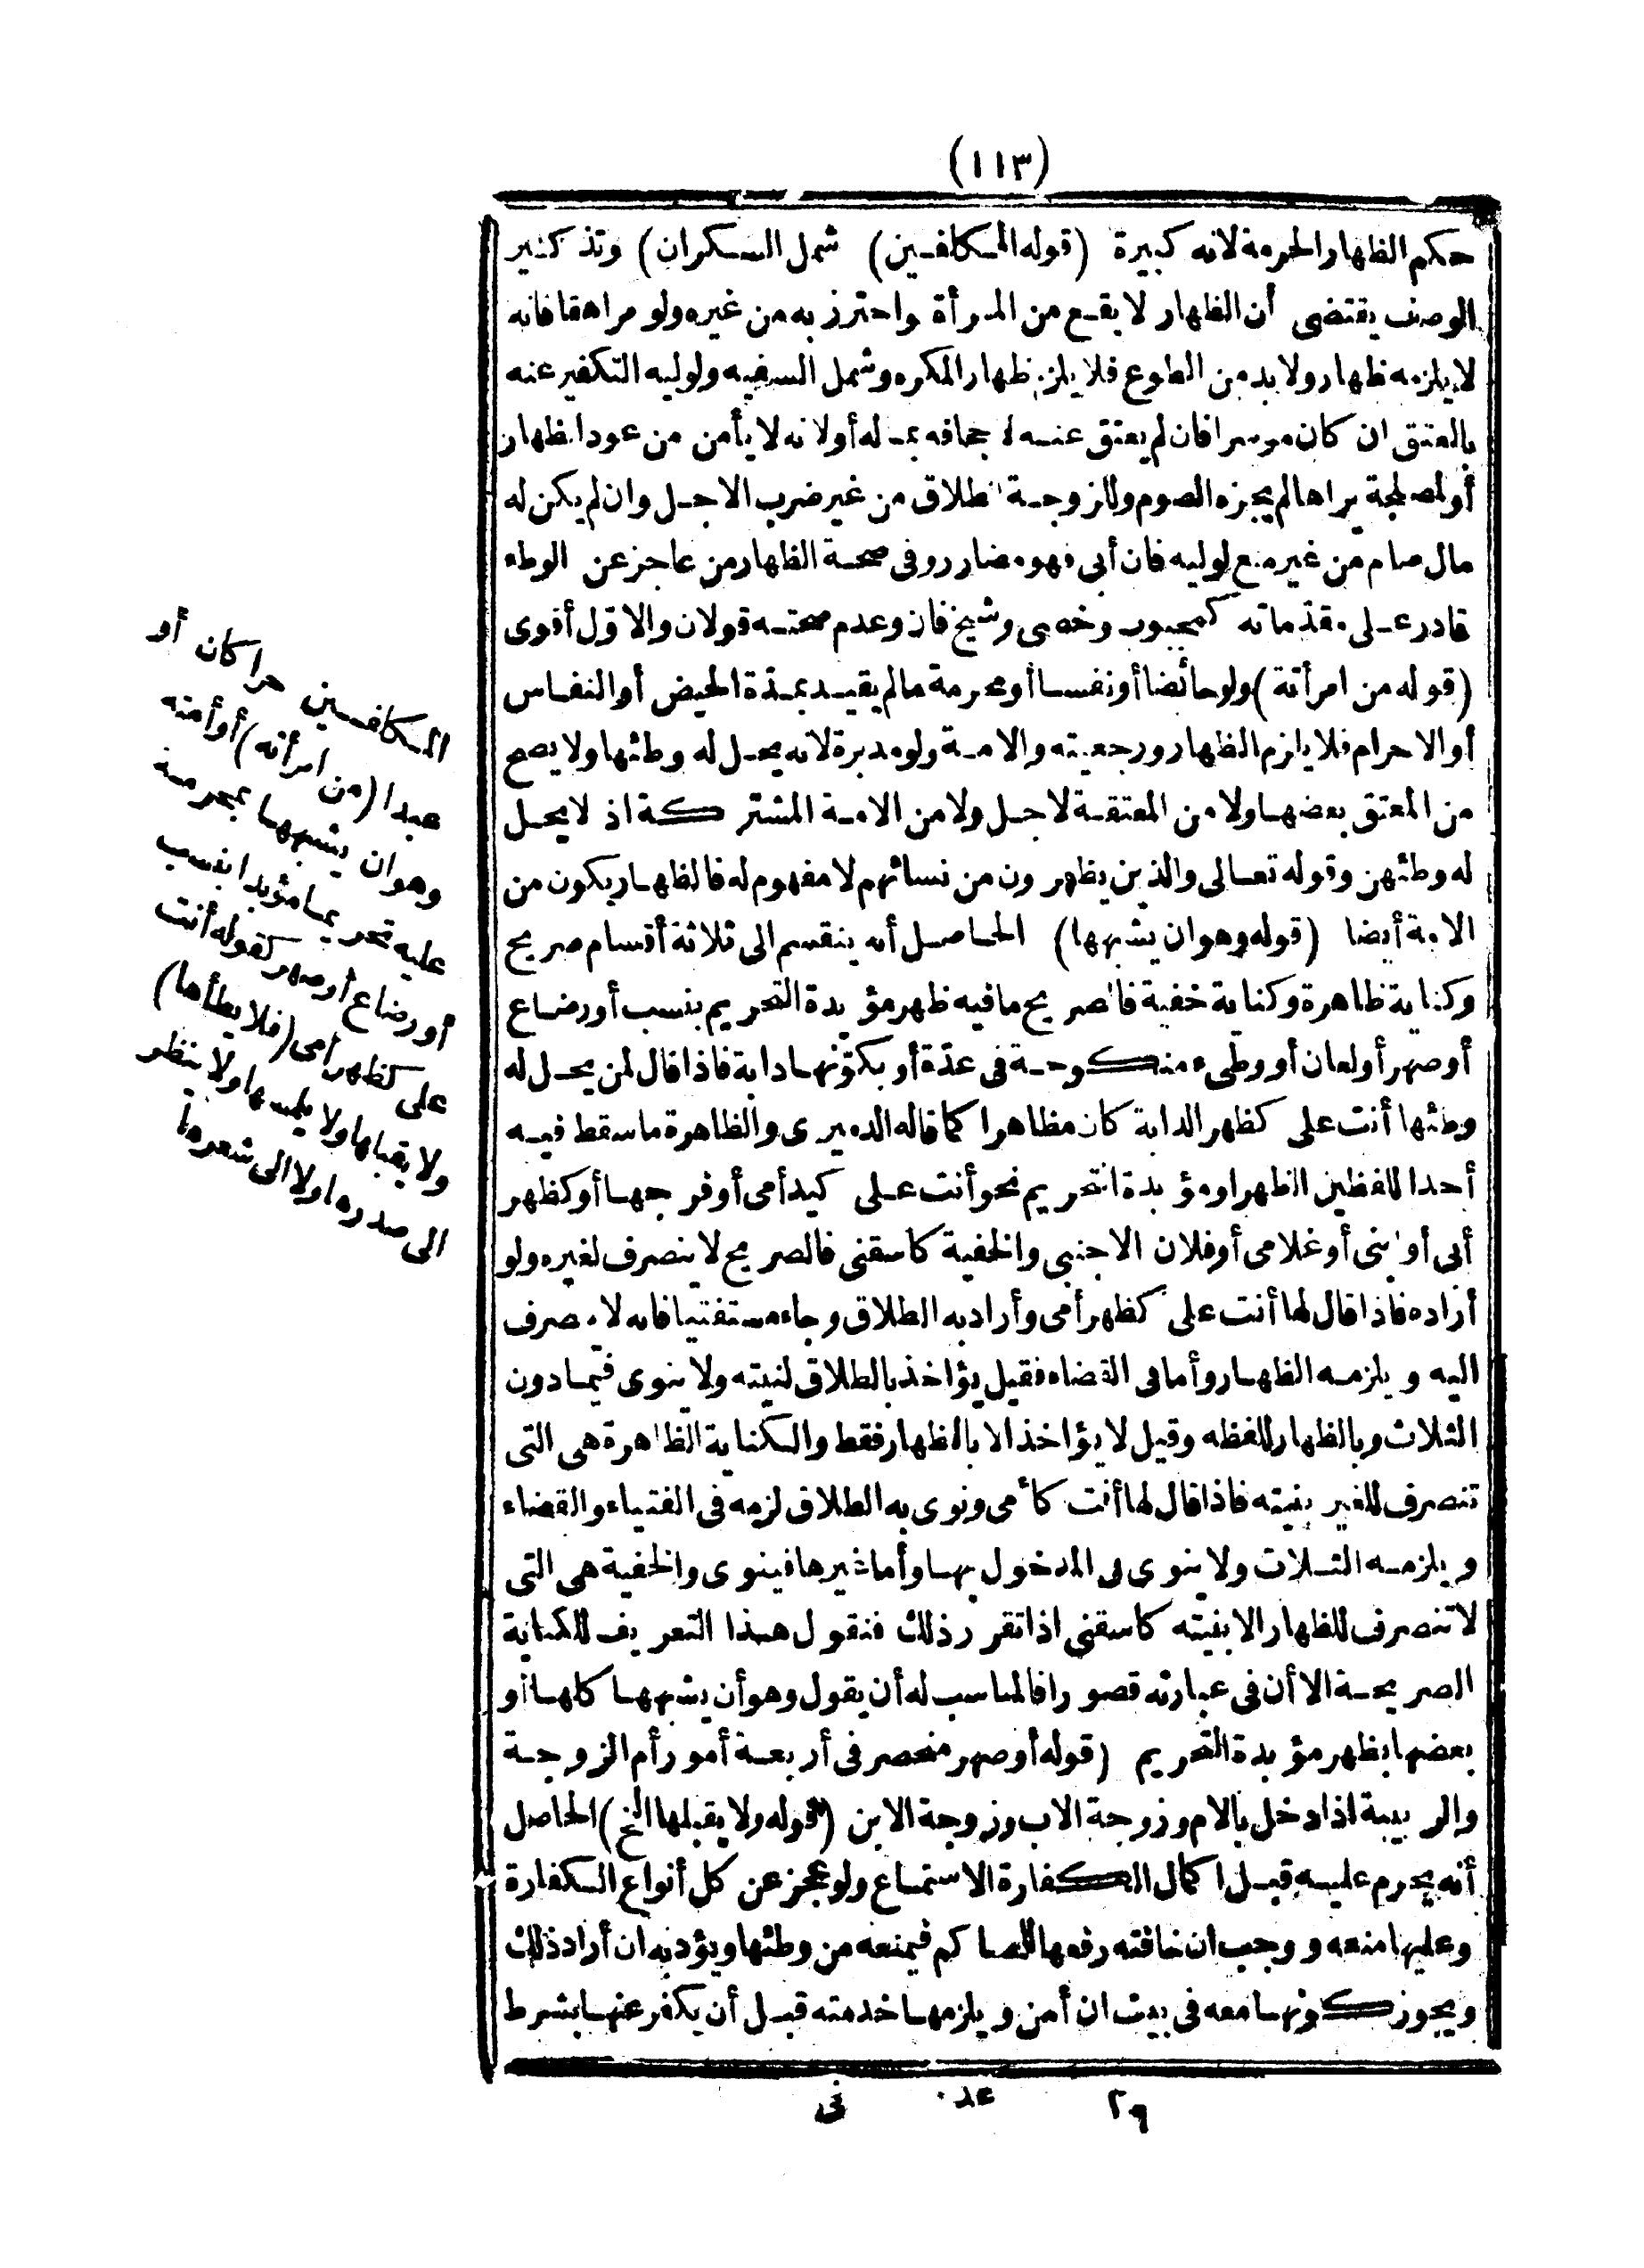 (١١٣)
حكم الظهار الحرمة لانه كبيرة (قوله المكلفين) شمل السكران) وتذكير
الوصف يقتضى أن الظهار لا يقع من المرأة واحترز به من غيره ولو مراهقا فانه
لا يلزمه ظهار ولا بد من الطوع فلا يلزم ظهار المكره وشمل السفيه ولوليه التكفير عنه
بالعتق ان كان موسرا فان لم يعتق عنه لاجحافه بماله أولانه لا يأمن من عود الظهار
أولمصلحة يراها لم يجزه الصوم وللزوجة الطلاق من غير ضرب الاجل وان لم يكن له
مال صام من غير منع لوليه فان أبى فهو مضارر وفى صحة الظهار من عاجز عن الوطء
قادر على مقدّماته كمجبوب وخصى وشيخ فان وعدم صحته قولان والاوّل أقوى
(قوله من امرأته) ولو حائضا أونفسا أو محرمة ما لم يقيد بمدّة الحيض أوالنفاس
أوالاحرام فلا يلزم الظهار ورجعيته والامة ولو مدبرة لانه يحل له وطئها ولا يصح
من المعتق بعضها ولا من المعتقة لاجل ولا من الامة المشتركة اذ لا يحل
له وطئهن وقوله تعالى والذين يظهرون من نسائهم لا مفهوم له فالظهار يكون من
الامة أيضا (قوله وهو ان يشبهها) الحاصل أنه ينقسم الى ثلاثة أقسام صريح
وكناية ظاهرة وكناية خفية فالصريح ما فيه ظهر مؤبدة التحريم بنسب أورضاع
أوصهر أولعان أووطىء منكوحة فى عدّة أو بكونها دابة فاذا قال لمن يحل له
وطئها أنت على كظهر الدابة كان مظاهرا كما قاله الدميرى والظاهرة ما سقط فيه
أحد اللفظين الظهر او مؤبدة التحريم نحو أنت على كيد أمى أوفرجها أو كظهر
أبى أوابنى أوغلامى أوفلان الاجنبى والخفية كاسقنى فالصريح لا ينصرف لغيره ولو
أراده فاذا قال لها أنت على كظهر أمى وأراد به الطلاق وجاء مستفتيا فانه لا يصرف
اليه ويلزمه الظهار وأما فى القضاء فقيل يؤاخذ بالطلاق لنيته ولا ينوى فيما دون
الثلاث وبالظهار للفظه وقيل لا يؤاخذ الا بالظهار فقط والكناية الظاهرة هى التى
تنصرف للغير بنيته فاذا قال لها أنت كأمى ونوى به الطلاق لزمه فى الفتياء والقضاء
ويلزمه الثلاث ولا ينوى فى المدخول بها وأما غيرها فينوى والخفية هى التى
لا تنصرف للظهار الا بنيته كاسقنى اذا تقرر ذلك فنقول هذا التعريف للكناية
الصريحة الا أن فى عبارته قصورا فالمناسب له أن يقول وهو أن يشبهها كلها أو
بعضها بظهر مؤبدة التحريم (قوله أوصهر منحصر فى أربعة أمور أم الزوجة
والربيبة اذا دخل بالام وزوجة الاب وزوجة الابن (قوله ولا يقبلها الخ) الحاصل
أنه يحرم عليه قبل اكمال الكفارة الاستمتاع ولو عجز عن كل أنواع الكفارة
وعليها منعه ووجب ان خافته رفعها للحاكم فيمنعه من وطئها ويؤدبه ان أراد ذلك
ويجوز كونها معه فى بيت ان أمن ويلزمها خدمته قبل أن يكفر عنها بشرط
المكلفين حرا كان أو
عبدا (من امرأته) أوأمته
وهو ان يشبهها بمحرمة
عليه تحريما مؤبدا بنسب
أورضاع أوصهر كقوله أنت
على كظهر أمى (فلا يطأها)
ولا يقبلها ولا يلمسها ولا ينظر
الى صدرها ولا الى شعرها
٢٩ عد فى